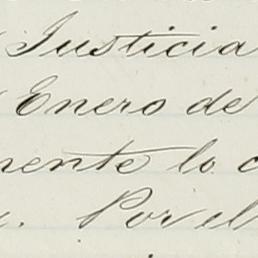 Justicia
Enero de
mente lo
Por el